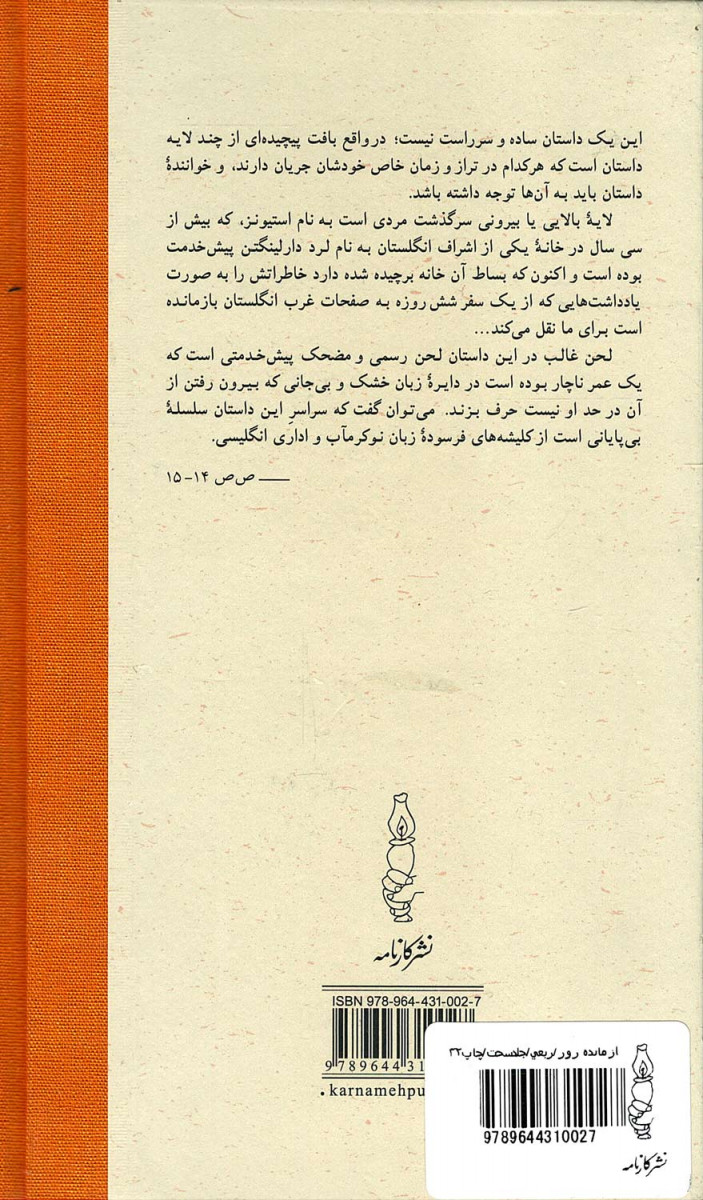 این یک داستان ساده و سرراست نیست؛ درواقع بافت پیچیده‌ای از چند لایه
داستان است که هرکدام در تراز و زمان خاص خودشان جریان دارند، و خوانندهٔ
داستان باید به آن‌ها توجه داشته باشد.
لایهٔ بالایی یا بیرونی سرگذشت مردی است به نام استیونز، که بیش از
سی سال در خانهٔ یکی از اشراف انگلستان به نام لرد دارلینگتن پیش‌خدمت
بوده است و اکنون که بساط آن خانه برچیده شده دارد خاطراتش را به صورت
یادداشت‌هایی که از یک سفر شش روزه به صفحات غرب انگلستان بازمانده
است برای ما نقل می‌کند...
لحن غالب در این داستان لحن رسمی و مضحک پیش‌خدمتی است که
یک عمر ناچار بوده است در دایرهٔ زبان خشک و بی‌جانی که بیرون رفتن از
آن در حد او نیست حرف بزند. می‌توان گفت که سراسرِ این داستان سلسلهٔ
بی‌پایانی است از کلیشه‌های فرسودهٔ زبان نوکرمآب و اداری انگلیسی.
— ص‌ص ۱۴–۱۵
نشر کارنامه
ISBN 978-964-431-002-7
9 789644 31
karnamehpu
بازمانده روز/ربعی/جلدسخت/چاپ۲۲
9789644310027
نشر کارنامه